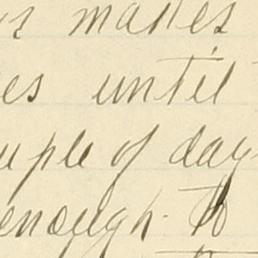 makes
es until
uple of day
enough. to